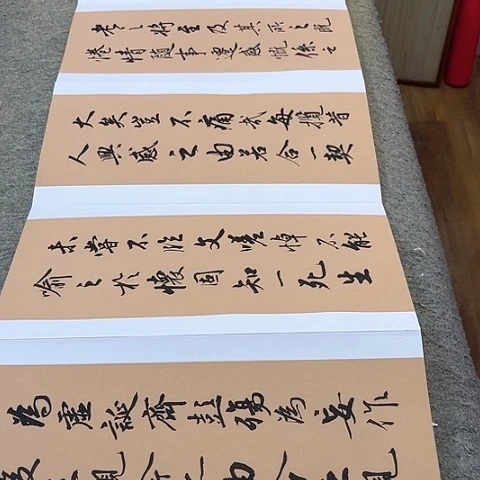 老之將至及其所之既
惓情隨事遷感慨係之
大矣豈不痛哉每攬昔
人興感之由若合一契
未嘗不臨文嗟悼不能
喻之於懷固知一死生
為虛誕齊彭殤為妄作
後之視今亦由今之視